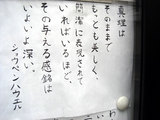 真理は
そのままで
もっとも美しく、
簡潔に表現されて
いればいるほど、
その与える感銘は
いよいよ深い。
ショウペンハウエル